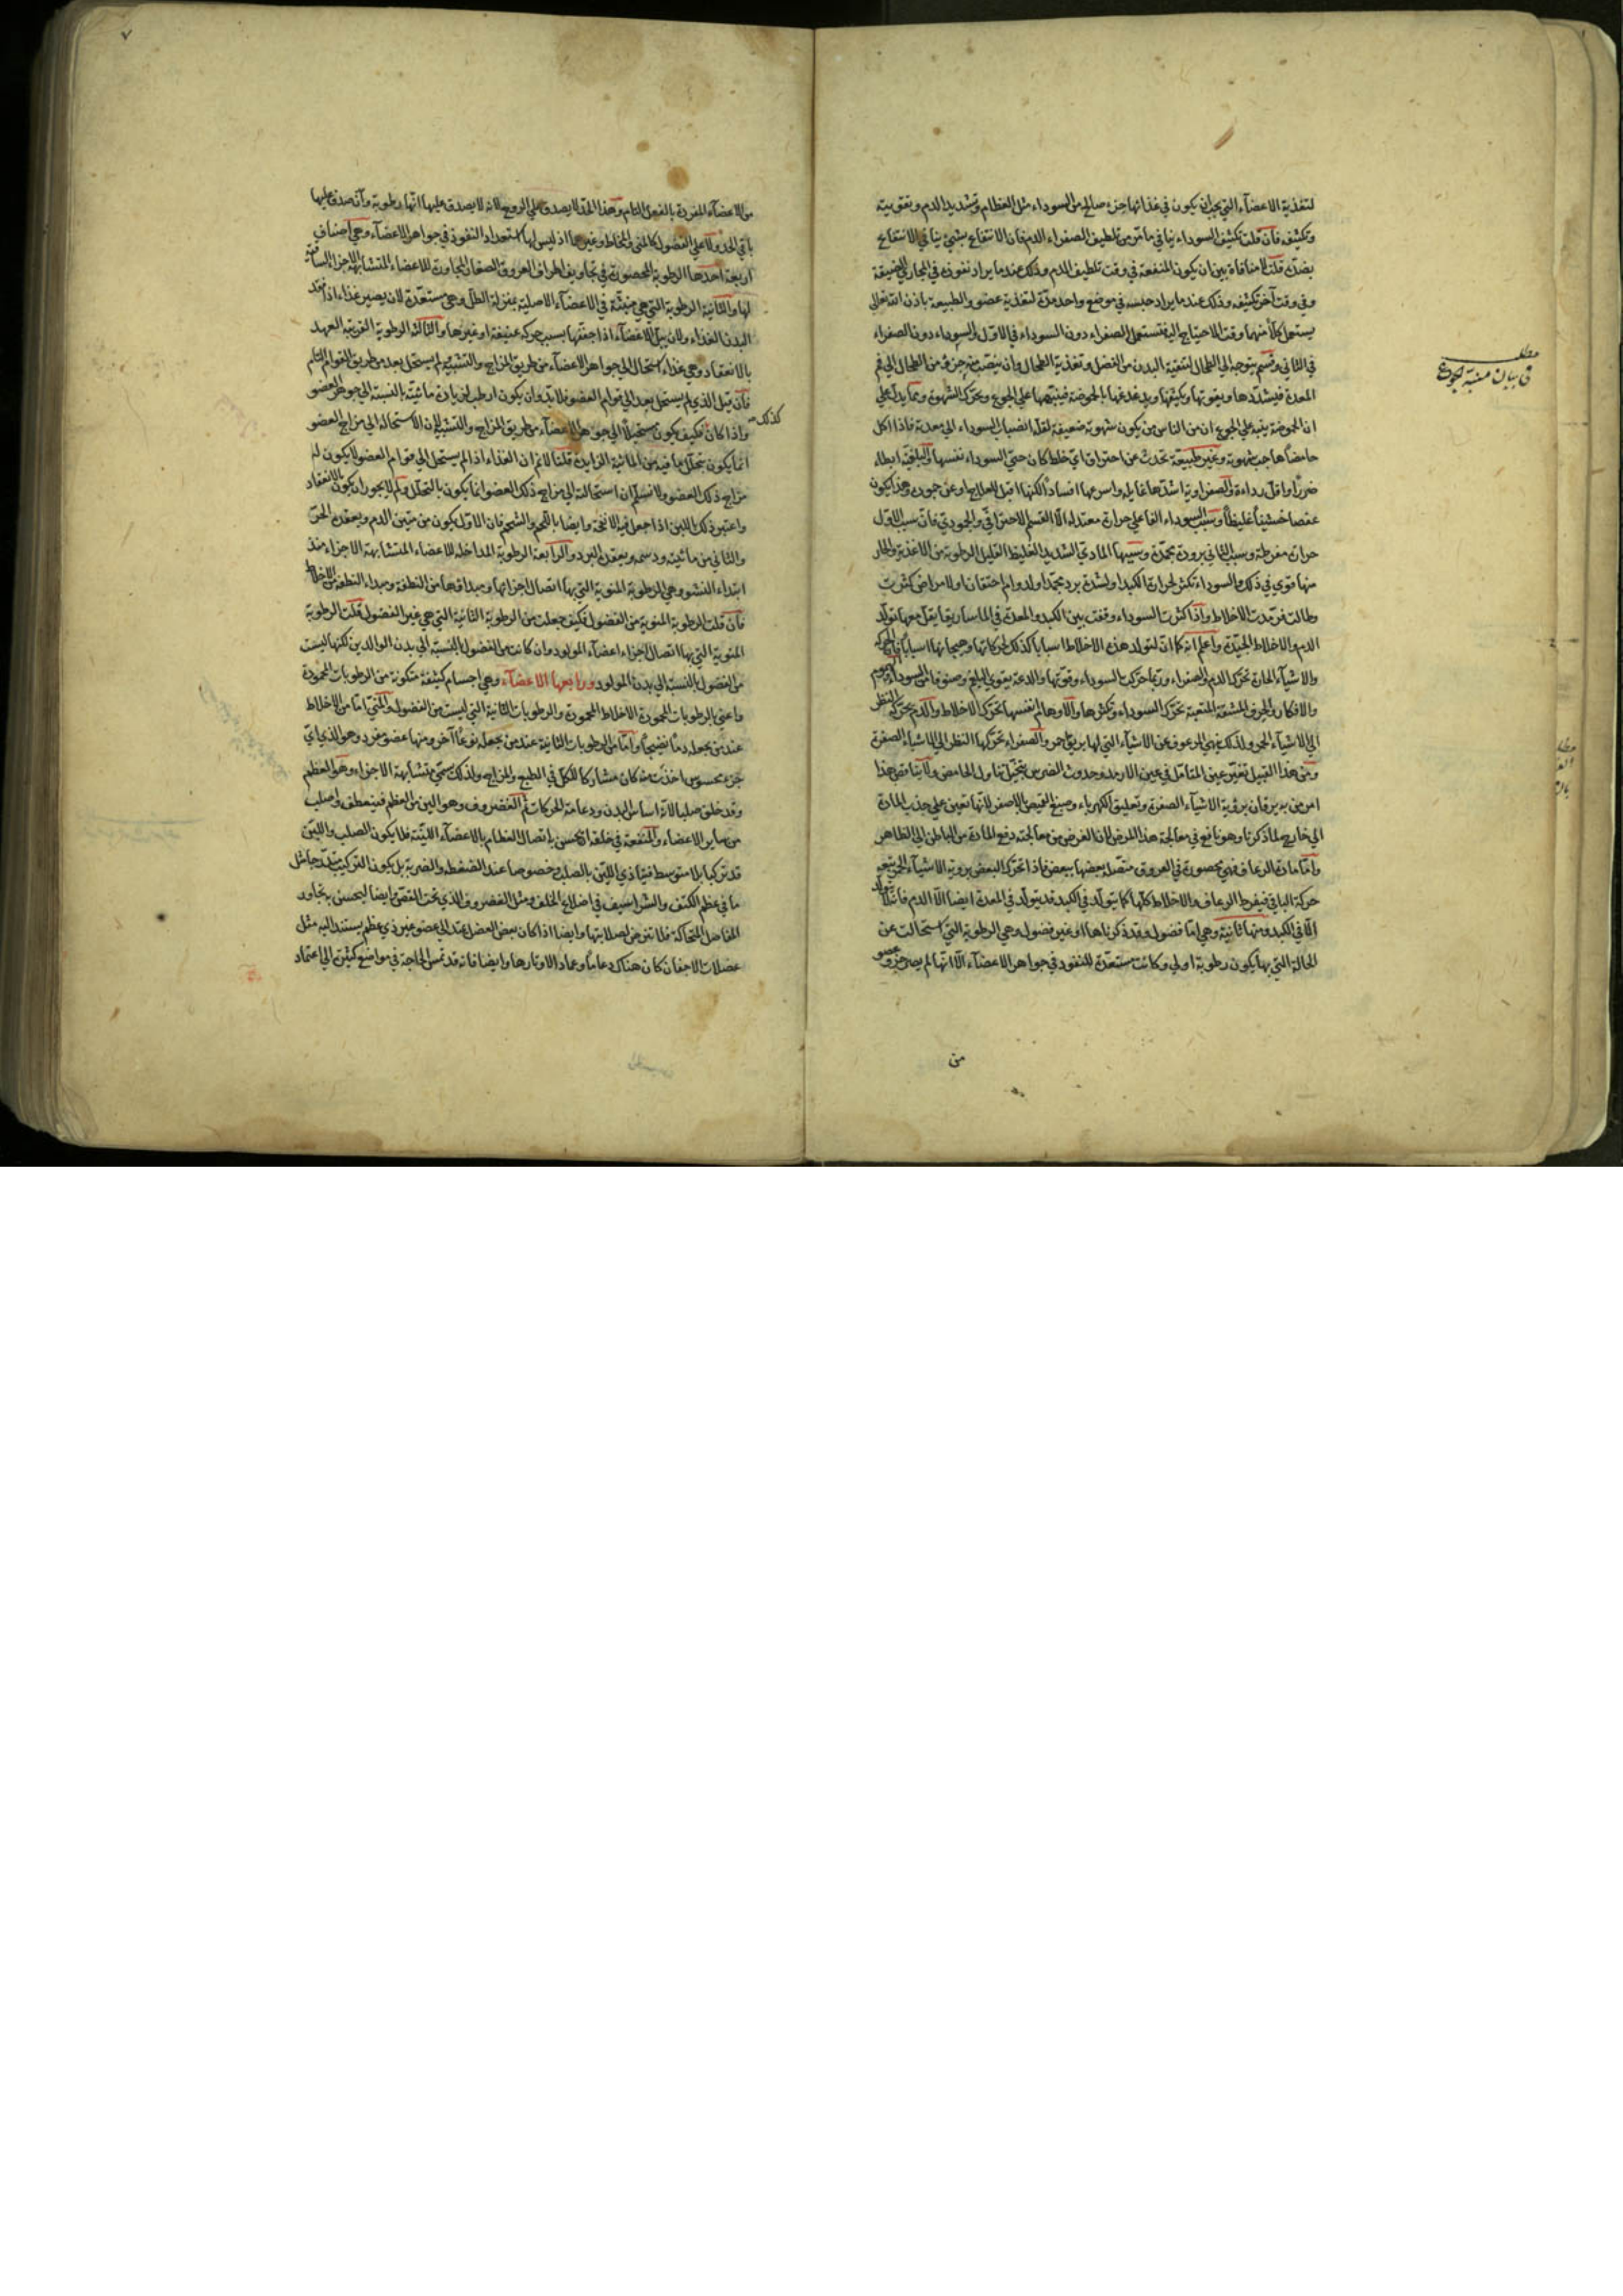 لتغذية الاعضآء التي يجب ان يكون في غذائها جزء صالح من السوداء مثل العظام وتشديد الدم وتقويته
وتكثيفه فان قلت تكثيف السوداء ينافي ما مر من تلطيف الصفراء الدم فان الانتفاع بشيء ينافي الانتفاع
بضده قلت لا منافاة بين ان يكون المنفعة في وقت تلطيف الدم وذلك عند ما يراد نفوذه في المجاري الضيقة
وفي وقت آخر تكثيفه وذلك عند ما يراد حبسه في موضع واحد مدة لتغذية عضو والطبيعة باذن الله تعالى
يستعمل كلاً منهما وقت الاحتياج اليه فتستعمل الصفراء دون السوداء في الاول والسوداء دون الصفراء
في الثاني وقسم يتوجه الي الطحال لتنقية البدن من الفضل وتغذية الطحال وان ينصب منه جزؤ من الطحال الي فم
المعدة فيشدها ويقويها ويكثفها ويدغدغها بالحموضة فينبهها علي الجوع ويحرك الشهوة ومما يدل علي
ان الحموضة ينبه علي الجوع ان من الناس من يكون شهوته ضعيفة لقلة انصباب السوداء الي معدته فاذا اكل
حامضاً هاجت شهوته وغير طبيعية تحدث عن احتراق اي خلط كان حتي السوداء نفسها والبلغمية ابطاء
ضرراً واقل رداءة والصفراوية اشدها غايلة واسرعها افساداً لكنها اقبل للعلاج وعن جمود وهذا يكون
عفصا خشيفا غليظاً وسبب السوداء الفاعلي حرارة معتدلة الا القسم الاحتراقي والجمودي فان سبب الاول
حرارة مفرطة وسبب الثاني برودة مجمدة وسببها المادي الشديد الغليظ القليل الرطوبة من الاغذية والحار
منها قوي في ذلك والسوداء تكثر لحرارة الكبد او لشدة برد مجمد او لدوام احتقان او لامراض كثرت
وطالت فرمدت الاخلاط واذا كثرت السوداء وقفت بين الكبد والمعدة في الماساريقا يقل معها تولد
الدم والاخلاط الجيدة واعلم انه كما ان لتولد هذه الاخلاط اسباباً كذلك لحركاتها وهيجانها اسباباً فالحركة
والاشيآء الحارة تحرك الدم والصفراء وربما حركت السوداء وقوتها والدعة يقوي البلغم وصنوفا من السوداء والهموم
والافكار والحرف المشقة المتعبة تحرك السوداء وتكثرها والاوهام نفسها تحرك الاخلاط والدم يحركه النظر
الي الاشيآء الحمر ولذلك نهي المرعوف عن الاشيآء التي لها بريق احمر والصفراء تحركها النظر الي الاشياء الصفرة
ومن هذا القبيل تغير عين المتامل في عين الارمد وحدوث الضرس بتخيل تناول الحامض ولا يناقض هذا
امر من به يرقان برؤية الاشيآء الصفرة وتعليق الكهرباء وصبغ القميص بالاصفر لانها تعين علي جذب المادة
الي خارج لما ذكرنا وهو نافع في معالجة هذا المرض لان الغرض من معالجته دفع المادة من الباطن الي الظاهر
واما مادة الرعاف فهي محصورة في العروق متصل بعضها ببعض فاذا تحرك البعض برؤية الاشيآء الحمر تتبعه
حركة الباقي فيفرط الرعاف والاخلاط كلها كما يتولد في الكبد قد يتولد في المعدة ايضا الا الدم فانه لا يتولد
الا في الكبد ومنها ثانية وهي اما فضول وقد ذكرناها او غير فضول وهي الرطوبة التي استحالت عن
الحالة التي بها يكون رطوبة اولي وكانت مستعدة للنفوذ في جواهر الاعضآء الا انها لم يصر جزء عضو
من
مطلب
في بيان منبه الجوع
٧
من الاعضآء المفردة بالفعل التام وهذا الحد لا يصدق علي الروح لانه لا يصدق عليها انها رطوبة وان صدق عليها
باقي الحد ولا علي الفضول كالمني والمخاط وغيرهما اذ ليس لها استعداد النفوذ في جواهر الاعضآء وهي اصناف
اربعة احدها الرطوبة المحصورة في تجاويف اطراف العروق الصغار المجاورة للاعضاء المتشابهة الاجزاء الساقية
لها والثانية الرطوبة التي هي منبثة في الاعضآء الاصلية بمنزلة الطل وهي مستعدة لان يصير غذاء اذا فقد
البدن الغذاء ولان يبل الاعضآء اذا جففها بسبب حركة عنيفة او غيرها والثالثة الرطوبة القريبة العهد
بالانعقاد وهي غذاء استحال الي جواهر الاعضآء من طريق المزاج والتشبيه ولم يستحل بعد من طريق القوام التام
فان قيل الذي لم يستحل بعد الي قوام العضو فلا بد وان يكون ارطب لزيادة مائيته بالنسبة الي جوهر العضو
كذلك
واذا كان فكيف يكون مستحيلاً الي جوهر الاعضآء من طريق المزاج والتشبيه لان الاستحالة الي مزاج العضو
انما يكون بتحلل ما فيه من المائية الزايدة قلنا لا نم ان الغذاء اذا لم يستحل الي قوام العضو لا يكون له
مزاج ذلك العضو ولا نسلم ان استحالته الي مزاج ذلك العضو انما يكون بالتحلل ولم لا يجوز ان يكون بالانعقاد
واعتبر ذلك باللبن اذا جعل فيه الانفحة وايضا باللحم والشحم فان الاول يكون من متين الدم ويعقده الحر
والثاني من مائيته ودسمه ويعقده البرد والرابعة الرطوبة المداخلة للاعضاء المتشابهة الاجزاء منذ
ابتداء النشو وهي الرطوبة المنوية التي بها اتصال اجزائها ومبداؤها من النطفة ومبداء النطفة من الاخلاط
فان قلت الرطوبة المنوية من الفضول فكيف جعلت من الرطوبة الثانية التي هي غير الفضول قلت الرطوبة
المنوية التي بها اتصال اجزاء اعضآء المولود وان كانت من الفضول بالنسبة الي بدن الوالدين لكنها ليست
من الفضول بالنسبة الي بدن المولود ورابعها الاعضآء وهي اجسام كثيفة متكونة من الرطوبات المحمودة
واعني بالرطوبات المحمودة الاخلاط المحمودة والرطوبات الثانية التي ليست من الفضول والمني اما من الاخلاط
عند من يجعله دماً نضيجاً واما من الرطوبات الثانية عند من يجعله نوعاً آخر ومنها عضو مفرد وهو الذي اي
جزء محسوس اخذت منه كان مشاركا للكل في الطبع والمزاج ولذلك سمي متشابهة الاجزاء وهو العظم
وقد خلق صلبا لانه اساس البدن ودعامة الحركات ثم الغضروف وهو الين من العظم فينعطف واصلب
من ساير الاعضاء والمنفعة في خلقه ان يحسن به اتصال العظام بالاعضآء اللينة فلا يكون الصلب واللين
قد تركبا بلا متوسط فيتاذي اللين بالصلب وخصوصا عند الضغطة والضربة بل يكون التركيب مدرجا مثل
ما في عظم الكتف والشراسيف في اضلاع الخلف ومثل الغضروف الذي تحت القص وايضا ليحسن به تجاور
المفاصل المتحاكة فلا تترض لصلابتها وايضا اذا كان بعض العضل يمتد الي عضو غير ذي عظم يستند اليه مثل
عضلات الاجفان كان هناك دعاما وعماد الاوتارها وايضا فانه قد تمس الحاجة في مواضع كثيرة الي اعتماد